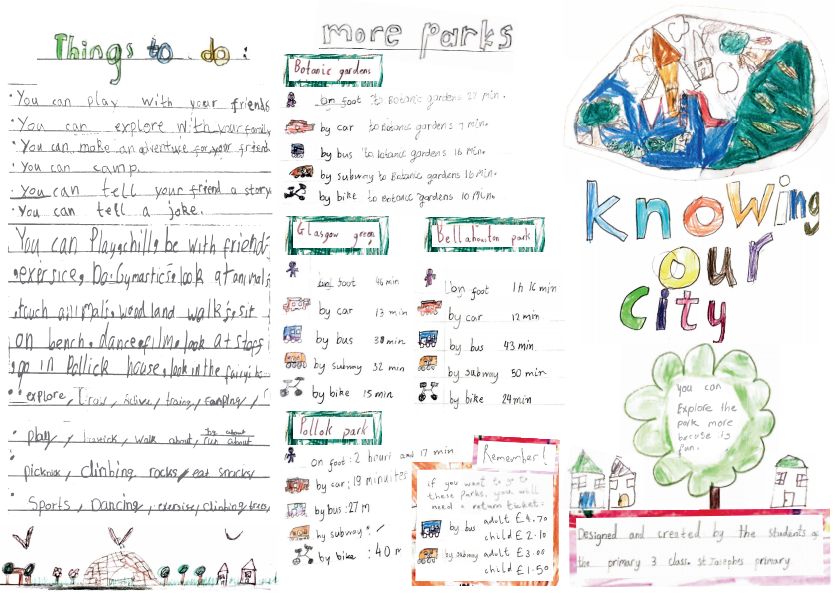 Things to do :
• You can play with your friends
• You can explore with your family
• You can make an adventure for your friend
• You can camp.
• You can tell your friend a story
• You can tell a joke.
You can Play, chill, be with friends
exersice, Do Gymastics, look at animals
touch animals, wood land walks, sit
on bench, dance, film, look at stops
go in Pollick house, look in the
• explore, Draw, relive, train, camping,
play, walk about, run about
• picknick, climbing rocks, eat snacks,
• Sports, Dancing, exersise, climbing trees,
more parks
Botanic gardens
on foot to Botanic gardens 27 min.
by car to Botanic gardens 7 min.
by bus to botanic gardens 16 min.
by subway to Botanic gardens 16 min.
by bike to Botanic gardens 10 Min.
Glasgow green
foot 46 min
by car 13 min
by bus 30 min
by subway 32 min
by bike 15 min
Bellahouston park
on foot 1h 16 min
by car 12 min
by bus 43 min
by subway 50 min
by bike 24 min
Pollok park
on foot: 2 houri and 17 min
by car: 19 minuites
by bus: 27 M
by subway: /
by bike : 40 m
Remember!
if you want to go to
these Parks, your will
need a return ticket:
by bus adult £4.70
child £2.10
by subway adult £3.00
child £1.50
knowing
our
city
You can
Explore the
park more
becuse is
fun.
Designed and created by the students of
the primary 3 class. St Josephs primary